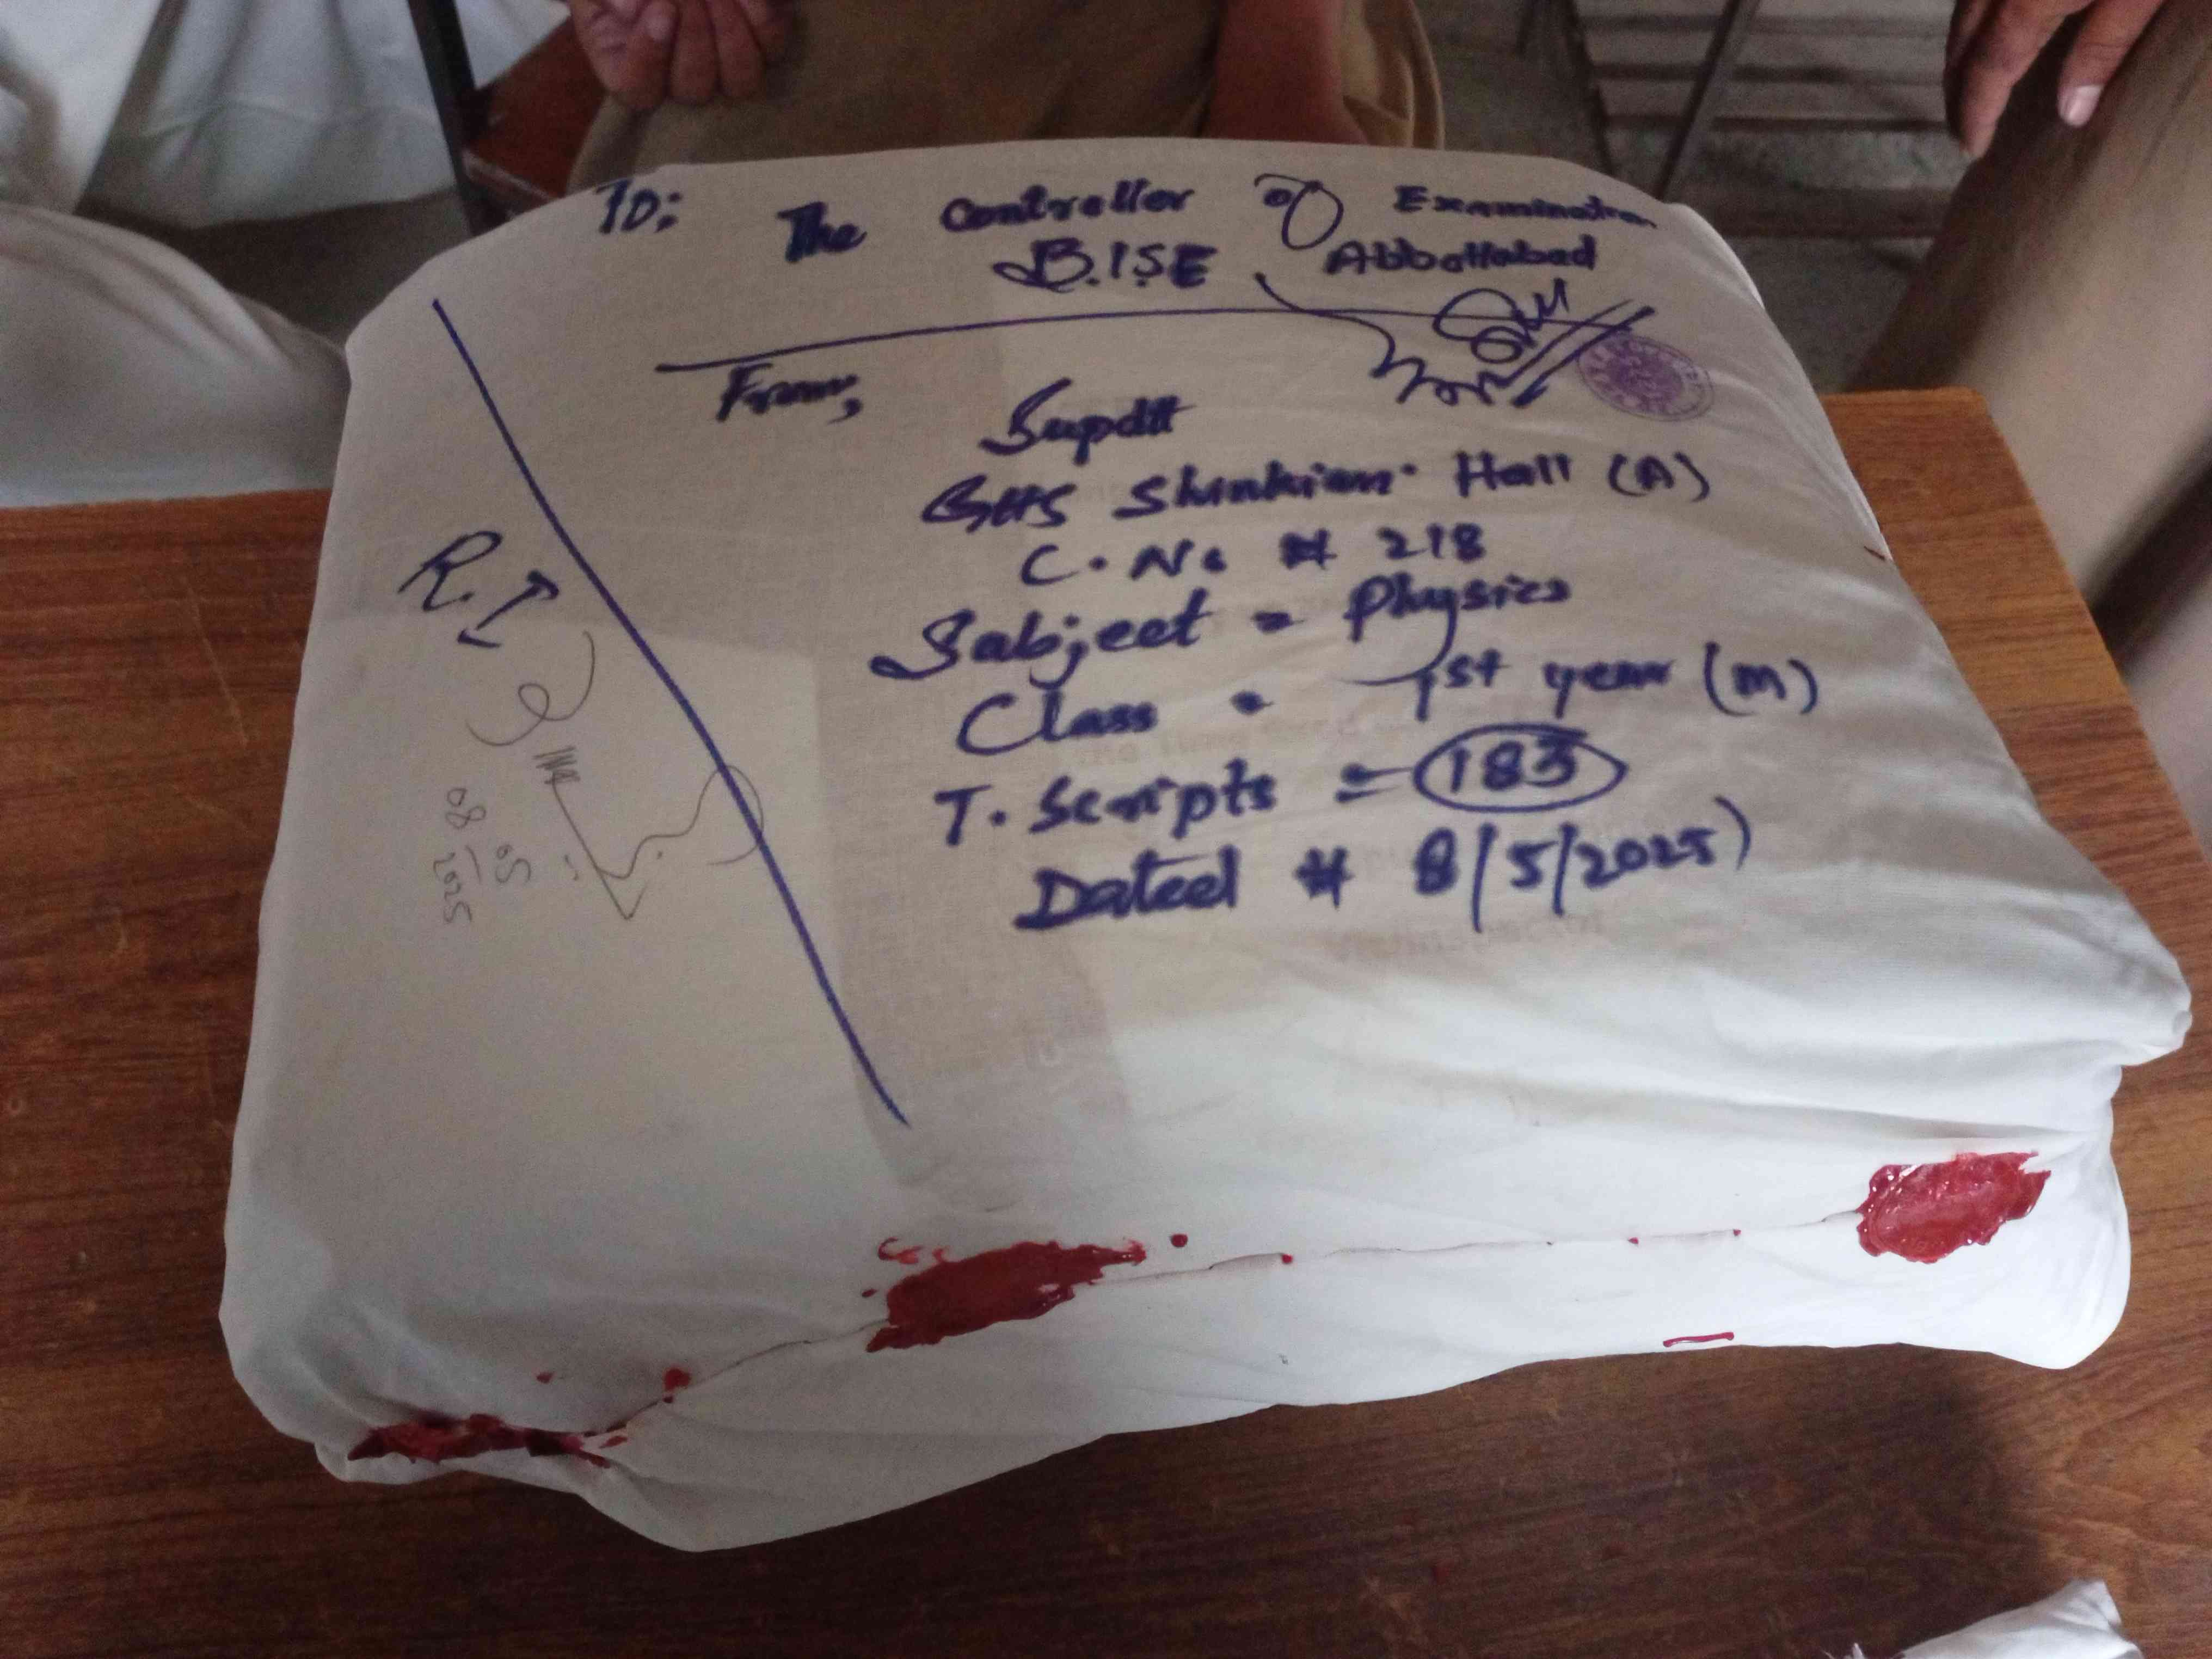 To: The Controller of Examination
B.I.S.E Abbottabad
From,
Supdtt
GHS Shinkiari Hall (A)
C. No # 218
Subject = Physics
Class = 1st year (M)
T. Scripts = 183
Dated # 8/5/2025
R.I
08 05 2025